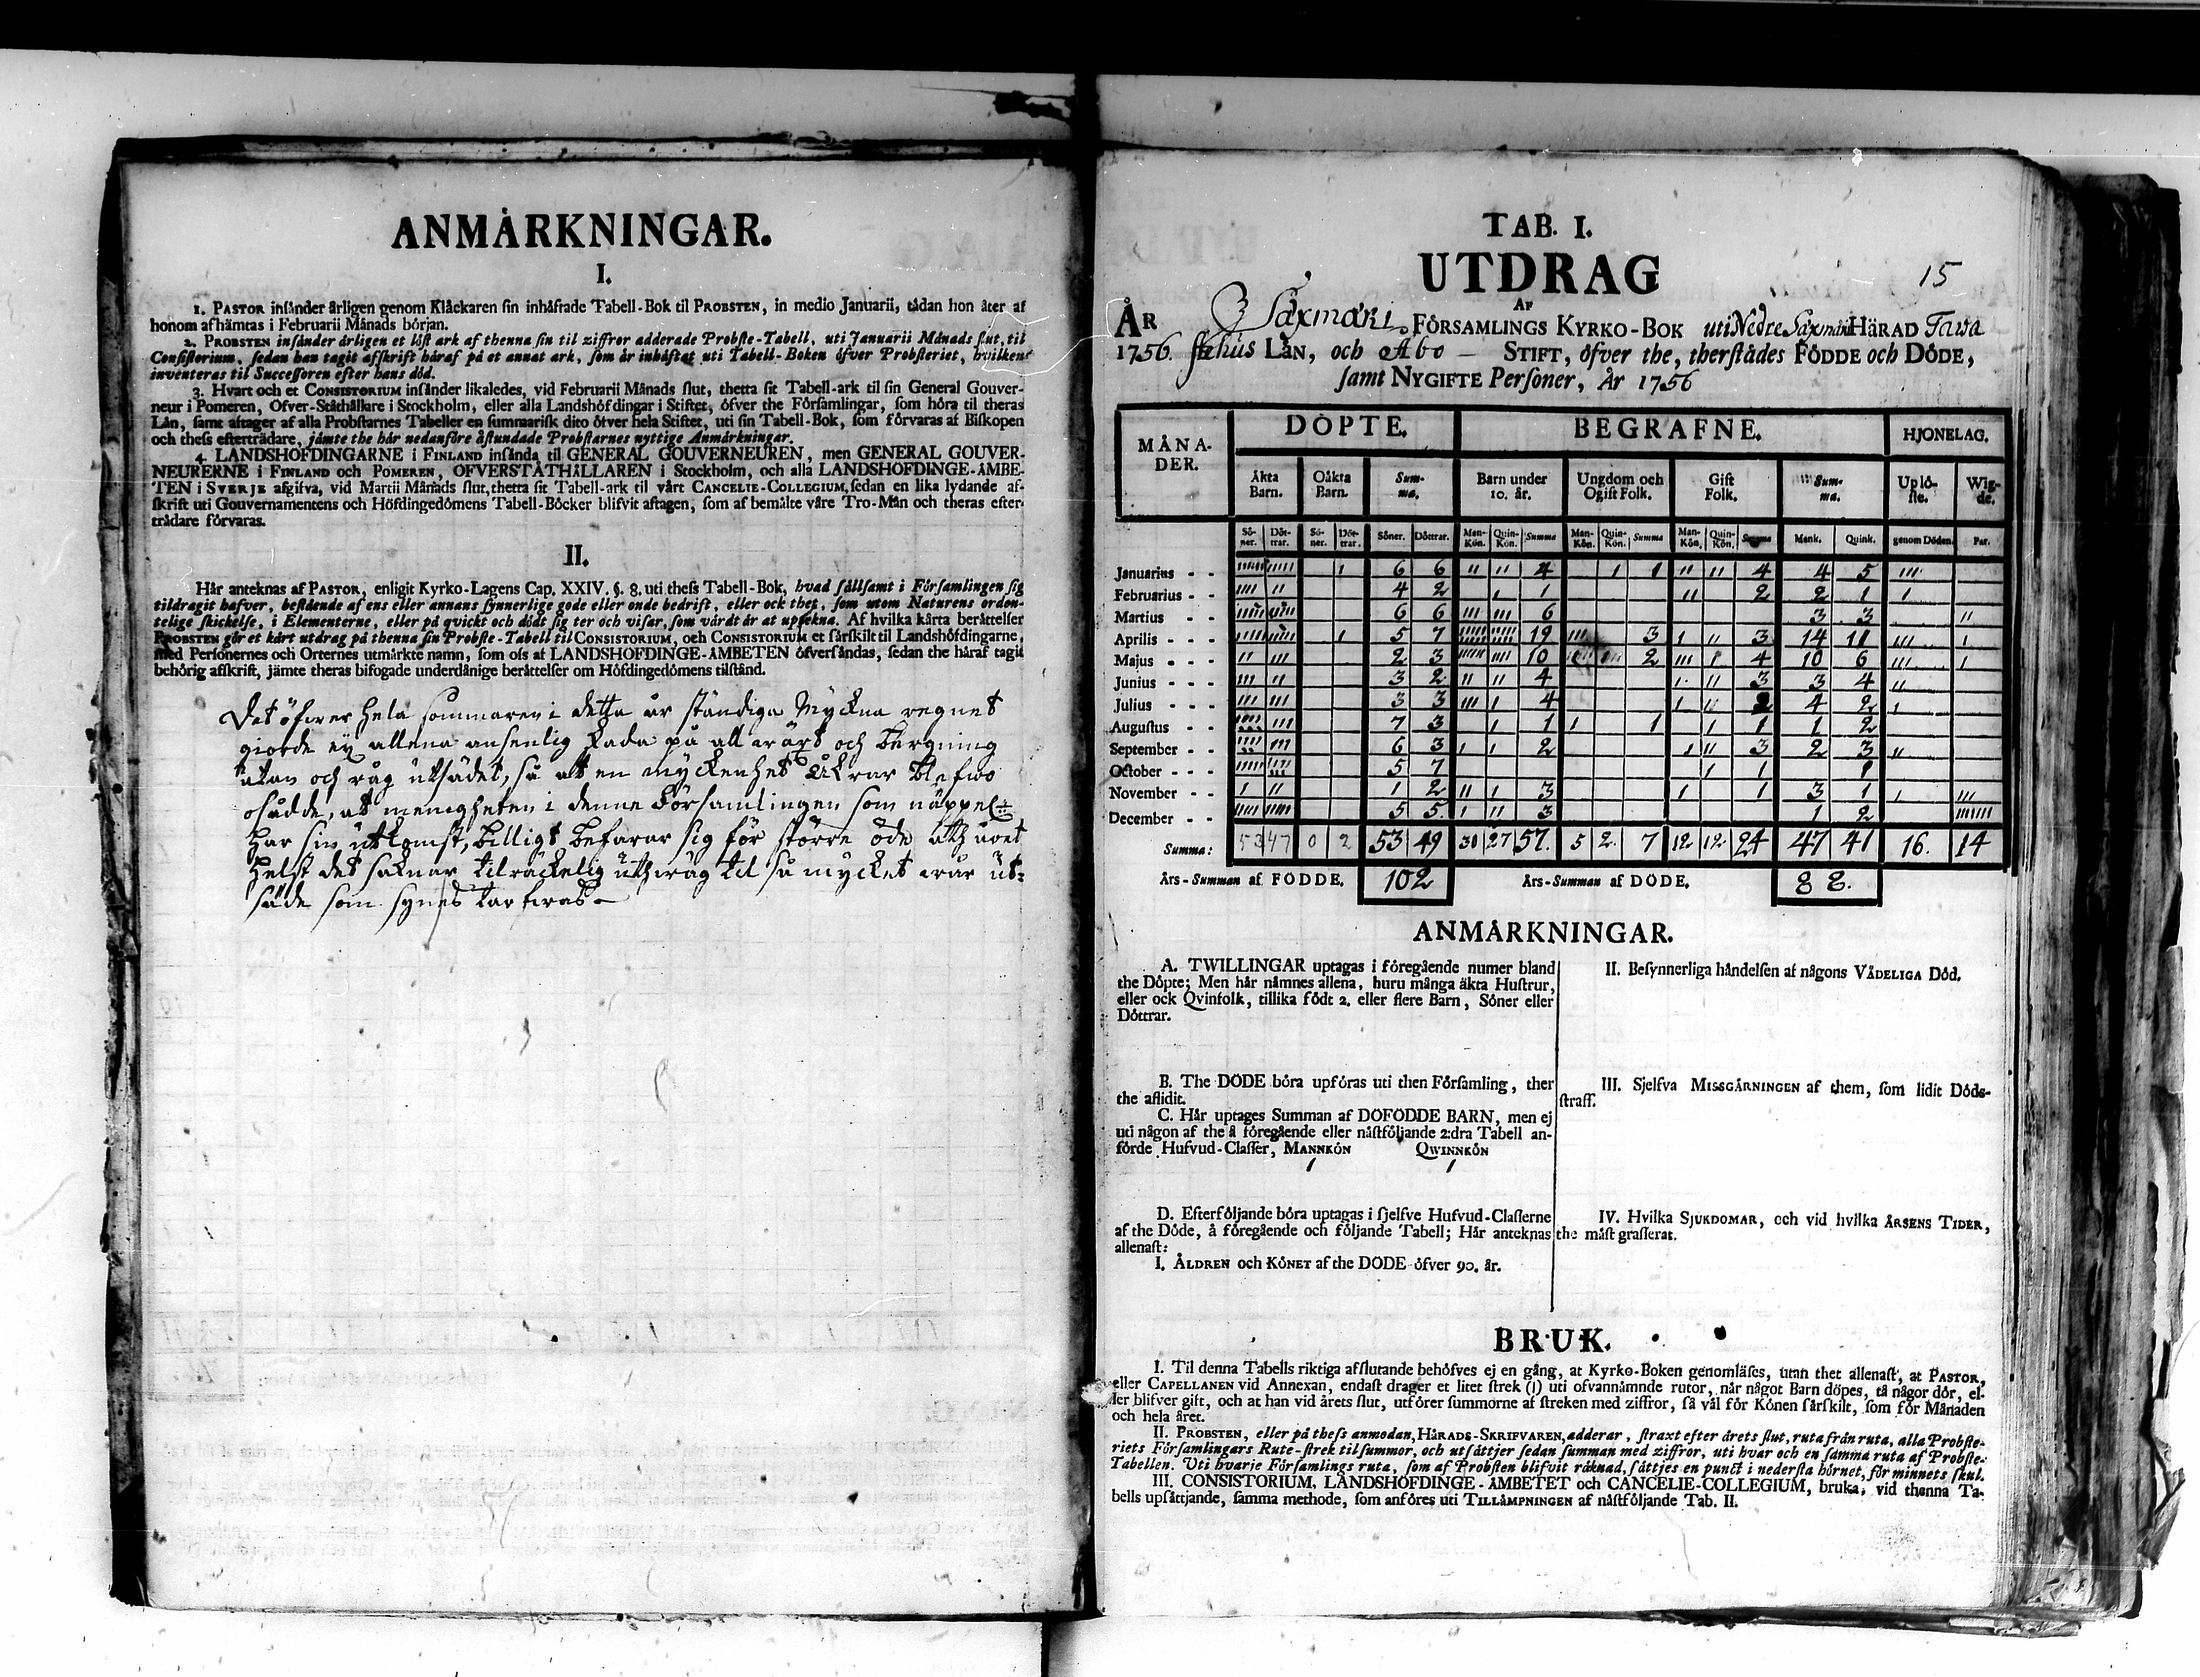 ANMÄRKNINGAR.
I.
1. PASTOR insänder årligen genom Klåckaren sin inhäftade Tabell-Bok til PROBSTEN, in medio Januarii, tådan hon åter af
honom afhämtas i Februarii Månads början.
2. PROBSTEN insänder årligen et löst ark af thenna sin til ziffror adderade Probste-Tabell, uti Januarii Månads slut, til
Consistorium, sedan han tagit afskrift häraf på et annat ark, som är inhäftat uti Tabell-Boken öfver Probsteriet, hvilken
inventeras til Successoren efter hans död.
3. Hvart och et CONSISTORIUM insänder likaledes, vid Februarii Månads slut, thetta sit Tabell-ark til sin General Gouver-
neur i Pomeren, Öfver-Ståthållare i Stockholm, eller alla Landshöfdingar i Stiftet, öfver the Församlingar, som höra til theras
Län, samt aftager af alla Probstarnes Tabeller en summarisk dito öfver hela Stiftet, uti sin Tabell-Bok, som förvaras af Biskopen
och thess efterträdare, jämte the här nedanföre åstundade Probstarnes nyttige Anmärkningar.
4. LANDSHÖFDINGARNE i FINLAND insända til GENERAL GOUVERNEUREN, men GENERAL GOUVER-
NEURERNE i FINLAND och POMEREN, ÖFVERSTÅTHÅLLAREN i Stockholm, och alla LANDSHÖFDINGE-ÄMBE-
TEN i SVERJE afgifva, vid Martii Månads slut, thetta sit Tabell-ark til vårt CANCELIE-COLLEGIUM, sedan en lika lydande af-
skrift uti Gouvernamentens och Höfdingedömens Tabell-Böcker blifvit aftagen, som af bemälte våre Tro-Män och theras efter-
trädare förvaras.
II.
Här anteknas af PASTOR, enligit Kyrko-Lagens Cap. XXIV. §. 8. uti thess Tabell-Bok, hvad sällsamt i Församlingen sig
tildragit hafver, bestående af ens eller annans synnerlige gode eller onde bedrift, eller ock thet, som utom Naturens orden-
telige skickelse, i Elementerne, eller på qvickt och dödt sig ter och visar, som värdt är at uptekna. Af hvilka kårta berättelser
PROBSTEN gör et kårt utdrag på thenna sin Probste-Tabell til CONSISTORIUM, och CONSISTORIUM et särskilt til Landshöfdingarne,
med Personernes och Orternes utmärkte namn, som oss af LANDSHÖFDINGE-ÄMBETEN öfversändas, sedan the häraf tagit
behörig afskrift, jämte theras bifogade underdånige berättelser om Höfdingedömens tilstånd.
Det öfwer hela sommaren i detta år ständiga Myckna regnet
giorde ey allena ansenlig skada på all wäxt och bergning
utan och råg utsädet, så att en myckenhet åkrar blefwo
osådde, at menigheten i denne Församlingen som näppel:
har sin utkomst, billigt befarar sig för större öde
helst det saknar tilräckelig til så mycket wår ut-
säde som synes tarfwas
TAB. I.
UTDRAG
15
AF
ÅR Säxmäki FÖRSAMLINGS KYRKO-BOK uti Nedre Säxmäki HÄRAD Tawa
1756. stehus LÄN, och Abo - STIFT, öfver the, therstädes FÖDDE och DÖDE,
samt NYGIFTE Personer, År 1756
MÅNADER. DÖPTE. BEGRAFNE. HJONELAG.
Äkta Barn. Oäkta Barn. Summa. Barn under 10. år. Ungdom och Ogift Folk. Gift Folk. Summa. Uplöste. Wigde.
Söner. Döttrar. Söner. Döttrar. Söner. Döttrar. Man-Kön. Quin-Kön. Summa Man-Kön. Quin-Kön. Summa Man-Kön. Quin-Kön. Summa Mank. Quink. genom Döden. Par.
Januarius - - 1 6 6 11 11 4 1 1 11 11 4 4 5 111
Februarius - - 1111 11 4 2 1 1 11 2 2 1 1
Martius - - 6 6 111 111 6 3 3 11
Aprilis - - - 1 5 7 19 111 3 1 11 3 14 11 1111 1
Majus - - - 11 111 2 3 10 2 111 1 4 10 6 111 1
Junius - - - 111 11 3 2 11 11 4 1 11 3 3 4 11
Julius - - - 111 111 3 3 111 1 4 1 11 2 4 2 1
Augustus - - 111 7 3 1 1 1 1 1 1 1 2
September - - 111 6 3 1 1 2 1 11 3 2 3 11
October - - - 5 7 1 1 1
November - - 1 11 1 2 11 1 3 1 1 3 1 1 111
December - - 5 5 1 11 3 1 2
Summa: 53 47 0 2 53 49 30 27 57. 5 2. 7 12 12 24 47 41 16. 14
Års-Summan af FÖDDE. 102 Års-Summan af DÖDE. 88.
ANMÄRKNINGAR.
A. TWILLINGAR uptagas i föregående numer bland
the Döpte; Men här nämnes allena, huru många äkta Hustrur,
eller ock Qvinfolk, tillika födt 2. eller flere Barn, Söner eller
Döttrar.
B. The DÖDE böra upföras uti then Församling, ther
the aflidit.
C. Här uptages Summan af DÖFÖDDE BARN, men ej
uti någon af the å föregående eller nästföljande 2:dra Tabell an-
förde Hufvud-Classer, MANNKÖN QWINNKÖN
1 1
D. Efterföljande böra uptagas i sjelfve Hufvud-Classerne
af the Döde, å föregående och följande Tabell; Här anteknas
allenast:
I. ÅLDREN och KÖNET af the DÖDE öfver 90. år.
II. Besynnerliga händelsen af någons VÅDELIGA Död.
III. Sjelfva MISSGÄRNINGEN af them, som lidit Döds-
straff.
IV. Hvilka SJUKDOMAR, och vid hvilka ÅRSENS TIDER,
the mäst grasserat.
BRUK.
I. Til denna Tabells riktiga afslutande behöfves ej en gång, at Kyrko-Boken genomläses, utan thet allenast, at PASTOR,
eller CAPELLANEN vid Annexan, endast drager et litet strek (|) uti ofvannämnde rutor, när något Barn döpes, tå någor dör, el-
ler blifver gift, och at han vid årets slut, utförer summorne af streken med ziffror, så väl för Könen särskilt, som för Månaden
och hela året.
II. PROBSTEN, eller på thess anmodan, HÄRADS-SKRIFVAREN, adderar, straxt efter årets slut, ruta från ruta, alla Probste-
riets Församlingars Rute-strek til summor, och utsättjer sedan summan med ziffror, uti hvar och en samma ruta af Probste-
Tabellen. Uti hvarje Församlings ruta, som af Probsten blifvit räknad, sättjes en punct i nedersta hörnet, för minnets skul.
III. CONSISTORIUM, LANDSHÖFDINGE-ÄMBETET och CANCELIE-COLLEGIUM, bruka, vid thenna Ta-
bells upsättjande, samma methode, som anföres uti TILLÄMPNINGEN af nästföljande Tab. II.